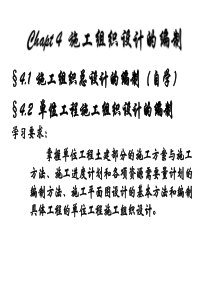 Chapt 4 施工组织设计的编制
§4.1 施工组织总设计的编制（自学）
§4.2 单位工程施工组织设计的编制
学习要求：
掌握单位工程土建部分的施工方案与施工
方法、施工进度计划和各项资源需要量计划的
编制方法、施工平面图设计的基本方法和编制
具体工程的单位工程施工组织设计。